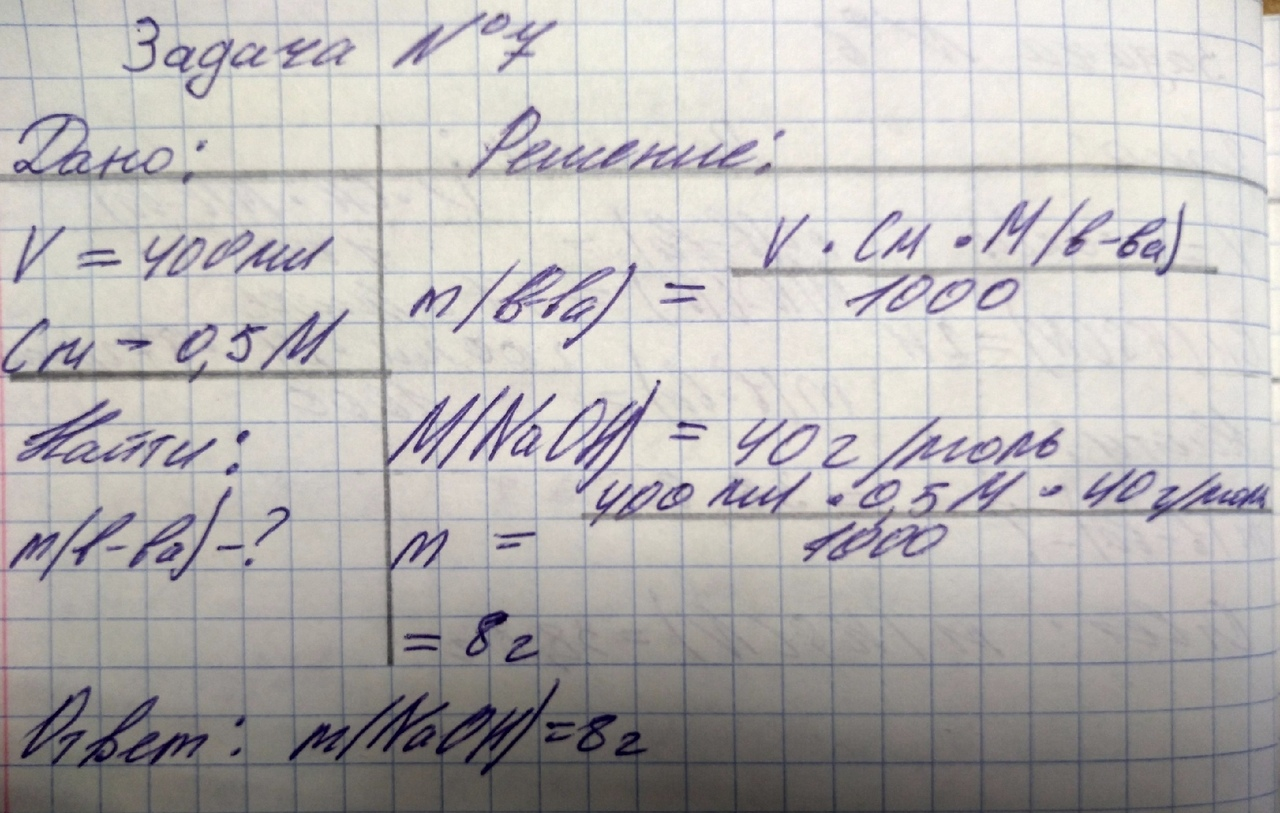 Задача №7
Дано:
V = 400 мл
См - 0,5 М
Найти:
m(в-ва) - ?
Решение:
m(в-ва) = V · См · М(в-ва)
1000
М(NaOH) = 40 г/моль
m = 400 мл · 0,5 М · 40 г/моль
1000
= 8 г
Ответ: m(NaOH) = 8 г